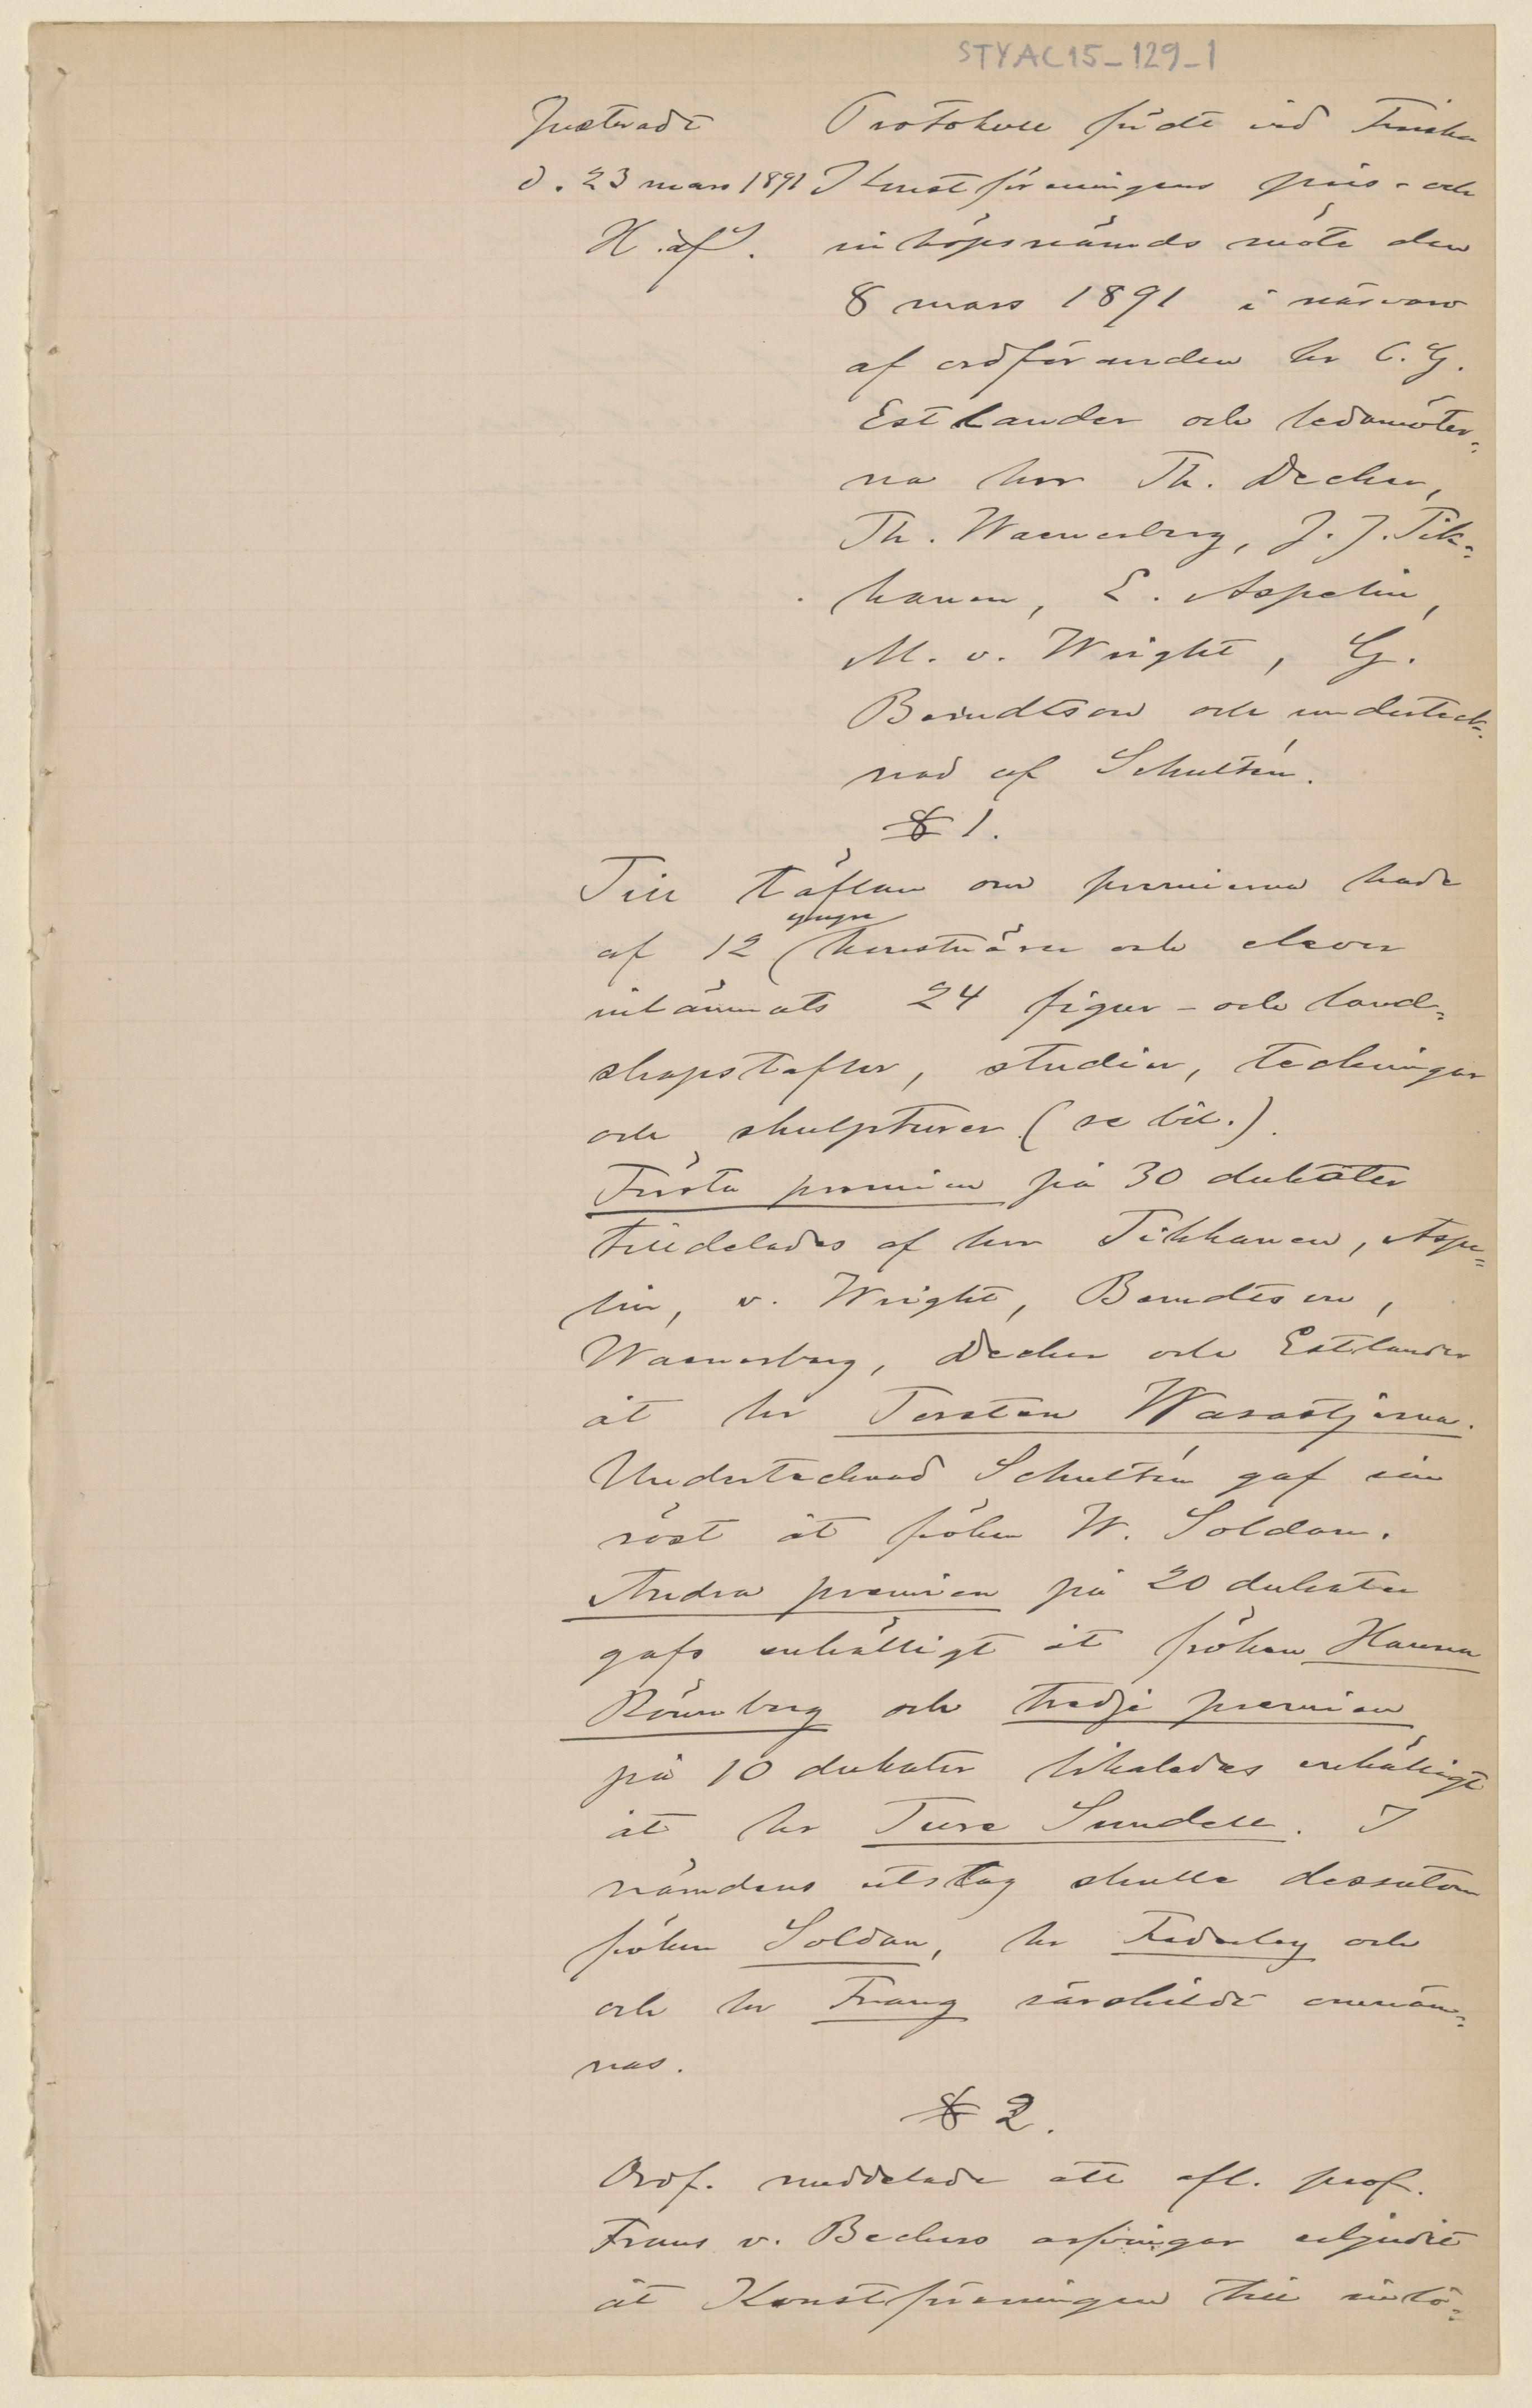 STYAC15_129_1
Justeradt
d. 23 mars 1891
H. af S.
Protokoll fördt vid Finska
Konstföreningens pris- och
inköpsnämnds möte den
8 mars 1891 i närvaro
af ordföranden hr C. G.
Estlander och ledamöter=
na hrr Th. Decker,
Th. Waenerberg, J. J. Tik=
kanen, E. Aspelin,
M. v. Wright, G.
Berndtson och underteck-
nad af Schultén.
§ 1.
Till täflan om premierna hade
yngre
af 12 konstnärer och elever
inlämnats 24 figur- och land=
skapstaflor, studier, teckningar
och skulpturer (se bil.).
Första premien på 30 dukater
tilldelades af hrr Tikkanen, Aspe=
lin, v. Wright, Berndtson,
Waenerberg, Decker och Estlander
åt hr Torsten Wasastjerna.
Undertecknad Schultén gaf sin
röst åt fröken W. Soldan.
Andra premien på 20 dukater
gafs enhälligt åt fröken Hanna
Rönnberg och tredje premien
på 10 dukater likaledes enhälligt
åt hr Ture Sundell. I
nämdens utslag skulle dessutom
fröken Soldan, hr Federley och
och hr Frang särskildt omnäm=
nas.
§ 2.
Ordf. meddelade att afl. prof.
Frans v. Beckers arfvingar erbjudit
åt Konstföreningen till inlö=